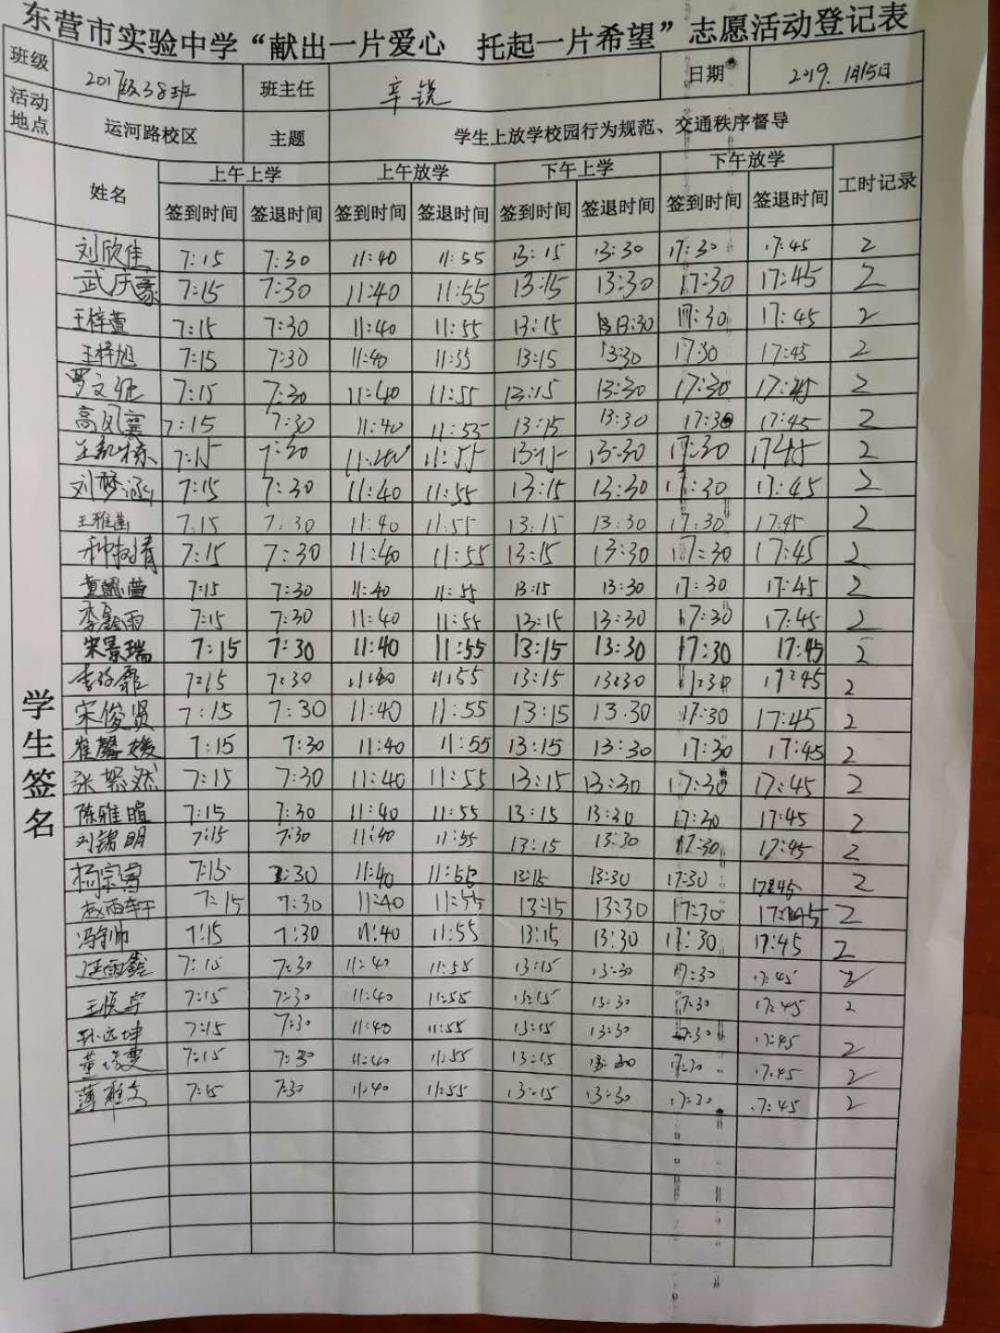 东营市实验中学“献出一片爱心 托起一片希望”志愿活动登记表
班级 2017级38班 班主任 辛锐 日期 2019.1月15日
活动地点 运河路校区 主题 学生上放学校园行为规范、交通秩序督导
姓名 上午上学 上午放学 下午上学 下午放学 工时记录
签到时间 签退时间 签到时间 签退时间 签到时间 签退时间 签到时间 签退时间
学生签名
刘欣佳 7:15 7:30 11:40 11:55 13:15 13:30 17:30 17:45 2
武庆豪 7:15 7:30 11:40 11:55 13:15 13:30 17:30 17:45 2
王梓萱 7:15 7:30 11:40 11:55 13:15 13:30 17:30 17:45 2
王梓旭 7:15 7:30 11:40 11:55 13:15 13:30 17:30 17:45 2
罗文 7:15 7:30 11:40 11:55 13:15 13:30 17:30 17:45 2
高风襄 7:15 7:30 11:40 11:55 13:15 13:30 17:30 17:45 2
王凯栋 7:15 7:30 11:40 11:55 13:15 13:30 17:30 17:45 2
刘梦涵 7:15 7:30 11:40 11:55 13:15 13:30 17:30 17:45 2
王雅茜 7:15 7:30 11:40 11:55 13:15 13:30 17:30 17:45 2
7:15 7:30 11:40 11:55 13:15 13:30 17:30 17:45 2
7:15 7:30 11:40 11:55 13:15 13:30 17:30 17:45 2
李 雨 7:15 7:30 11:40 11:55 13:15 13:30 17:30 17:45 2
宋景瑞 7:15 7:30 11:40 11:55 13:15 13:30 17:30 17:45 2
7:15 7:30 11:40 11:55 13:15 13:30 17:30 17:45 2
宋俊贤 7:15 7:30 11:40 11:55 13:15 13.30 17:30 17:45 2
崔馨 7:15 7:30 11:40 11:55 13:15 13:30 17:30 17:45 2
张 然 7:15 7:30 11:40 11:55 13:15 13:30 17:30 17:45 2
陈雅暄 7:15 7:30 11:40 11:55 13:15 13:30 17:30 17:45 2
刘 明 7:15 7:30 11:40 11:55 13:15 13:30 17:30 17:45 2
杨宗 7:15 7:30 11:40 11:55 13:15 13:30 17:30 17:45 2
赵雨轩 7:15 7:30 11:40 11:55 13:15 13:30 17:30 17:45 2
冯 帅 7:15 7:30 11:40 11:55 13:15 13:30 17:30 17:45 2
雨鑫 7:15 7:30 11:40 11:55 13:15 13:30 17:30 17:45 2
王 宇 7:15 7:30 11:40 11:55 13:15 13:30 17:30 17:45 2
孙 坤 7:15 7:30 11:40 11:55 13:15 13:30 17:30 17:45 2
董 7:15 7:30 11:40 11:55 13:15 13:30 17:30 17:45 2
薄雅文 7:15 7:30 11:40 11:55 13:15 13:30 17:30 17:45 2